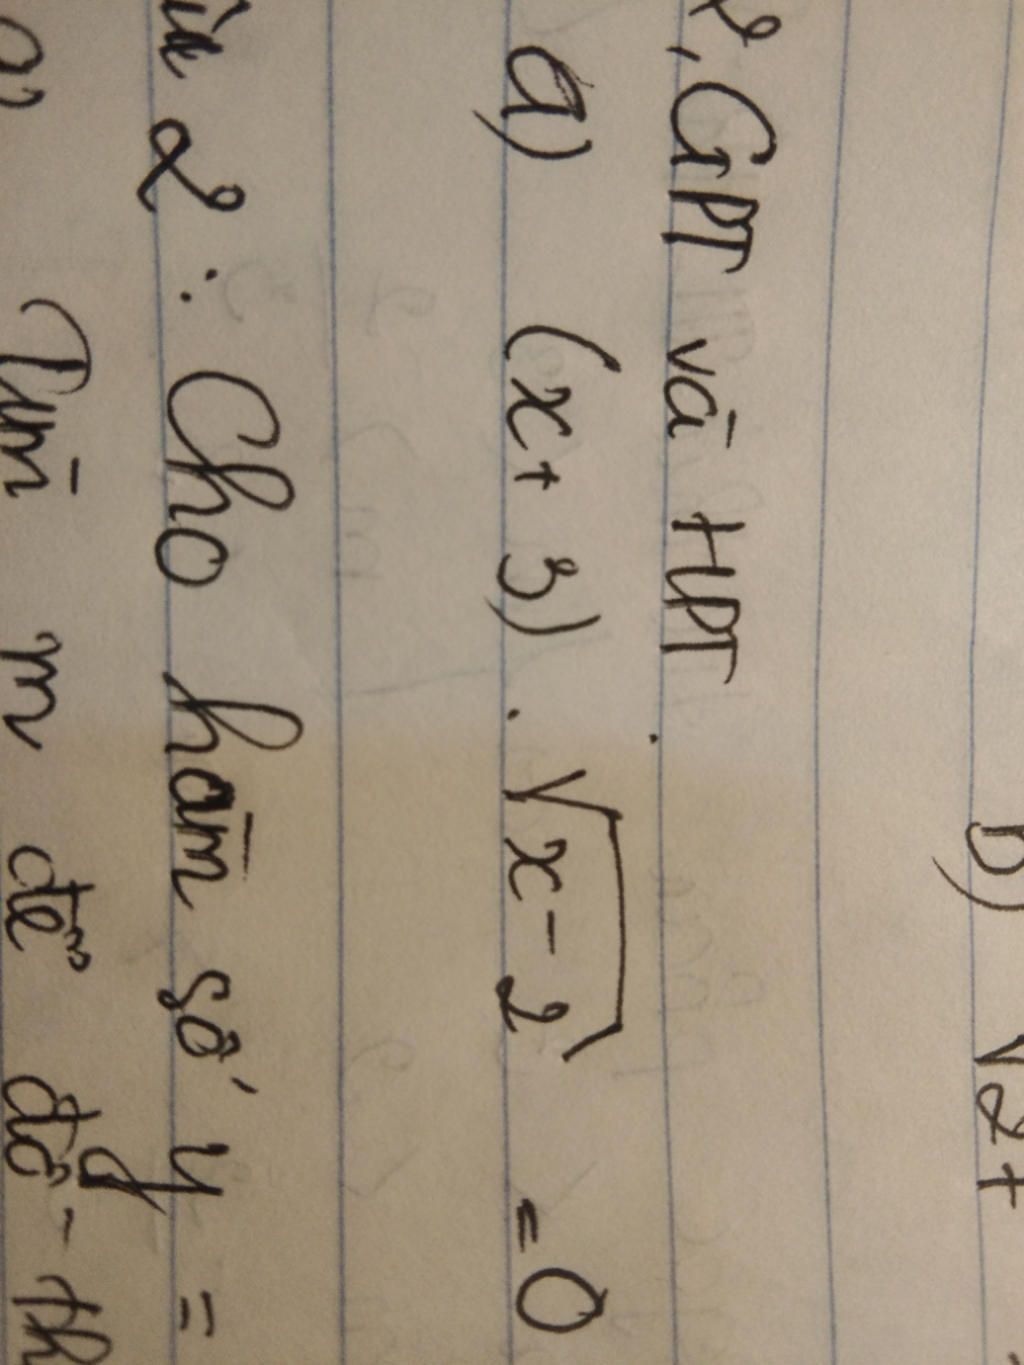 b) √2+
2, GPT và HPT.
a) (x+3).√x-2 = 0
2: Cho hàm số y =
Tìm m để đồ-th